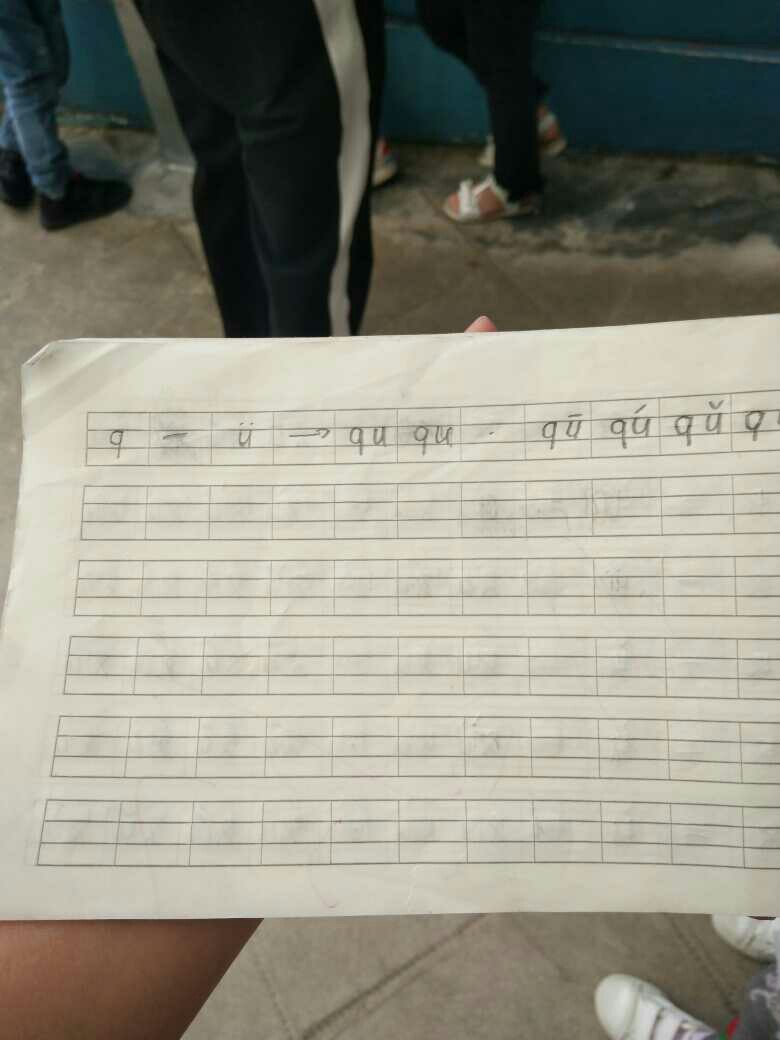 q – ü → qu qu qū qú qǔ q